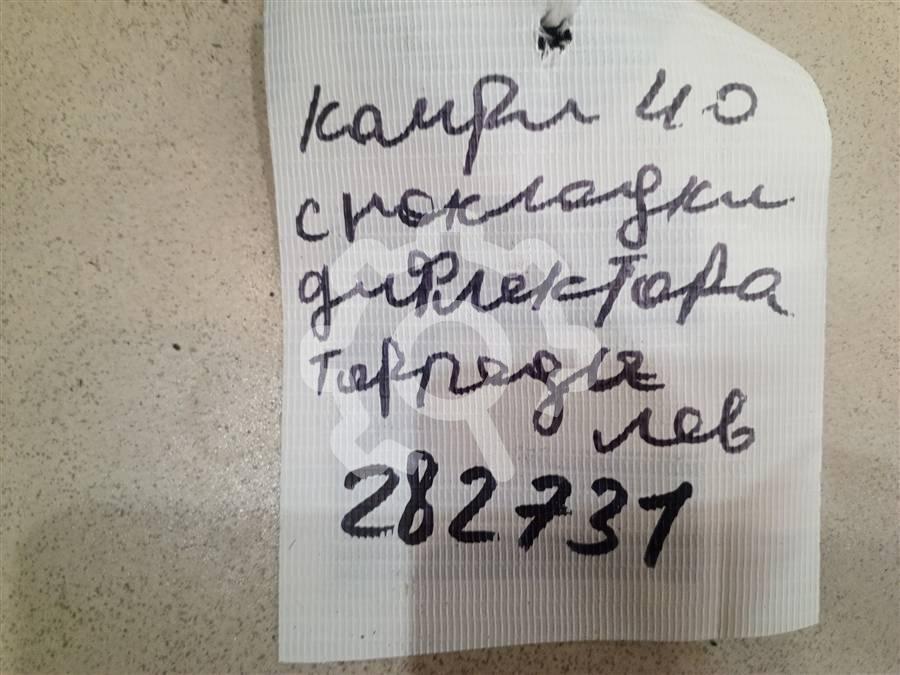 камри 40
с прокладки
дифлектора
торпеды
лев
282731